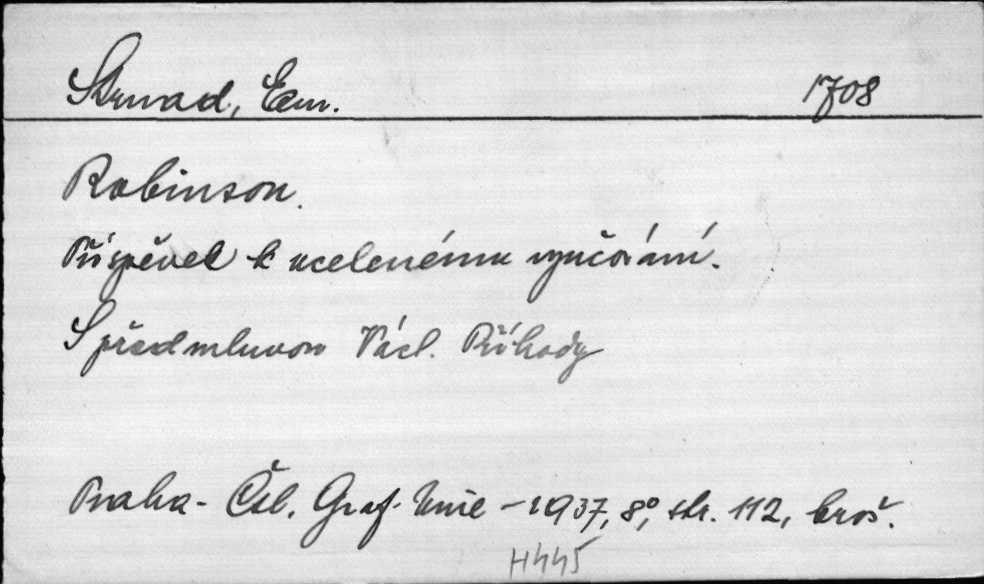 Strnad, Em. 1708
Robinson.
Příspěvek k ucelenému vyučování.
S předmluvou Václ. Příhody
Praha - Čsl. Graf. Unie - 1937, 8°, str. 112, brož.
H445